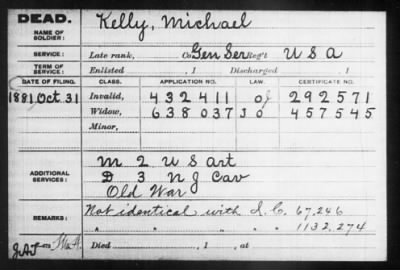 DEAD.
NAME OF SOLDIER: Kelly, Michael
SERVICE: Late rank, Co Gen Ser Reg't U S A
TERM OF SERVICE: Enlisted , 1 Discharged , 1
DATE OF FILING. CLASS. APPLICATION NO. LAW. CERTIFICATE NO.
1881 Oct. 31 Invalid, 432411 292571
Widow, 638037 457545
Minor,
ADDITIONAL SERVICES: M 2 U S Art
D 3 N J Cav
Old War
REMARKS: Not identical with I. C. 67,246
" " " 1132,274
Died , 1 , at